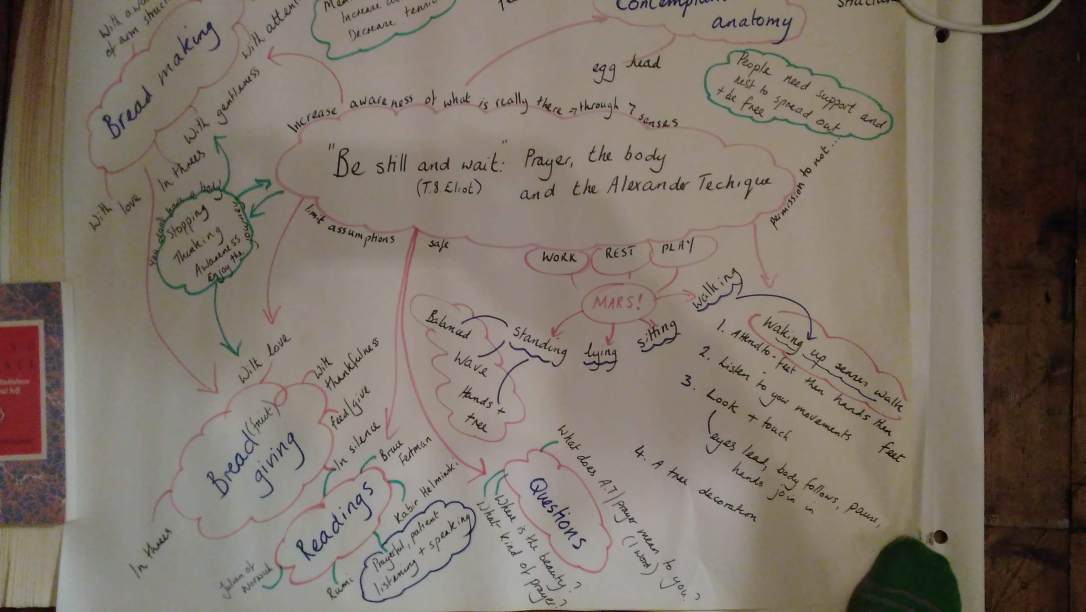 With awa
of arm struc
With attenti
Bread making
With gentleness
In threes
With love
Increase a
Decrease tension
Contempla
anatomy
egg head
People need support and
rest to spread out
+ be free
permission to not...
Increase awareness of what is really there → through 7 senses
"Be still and wait." Prayer, the body
(T.S Eliot) and the Alexander Techique
limit assumptions
safe
you don't have a body
Stopping
Thinking
Awareness
Enjoy the
WORK
REST
PLAY
MARS!
walking
sitting
lying
standing
Balanced
Wave
Hands +
tree
Waking up senses walk
1. Attend to - feet then hands then feet
2. Listen to your movements
3. Look + touch
(eyes lead, body follows, pause,
hands join in
4. A tree decoration
With love
With
thankfulness
feed/give
In silence
Bread (fruit)
giving
In threes
Readings
Bruce
Fertman
Kabir Helminski
Prayerful, patient
listening + speaking
Rumi
Julian of
Norwich
Questions
What does A.T/prayer mean to you?
(1 word)
Where is the beauty?
What kind of prayer?